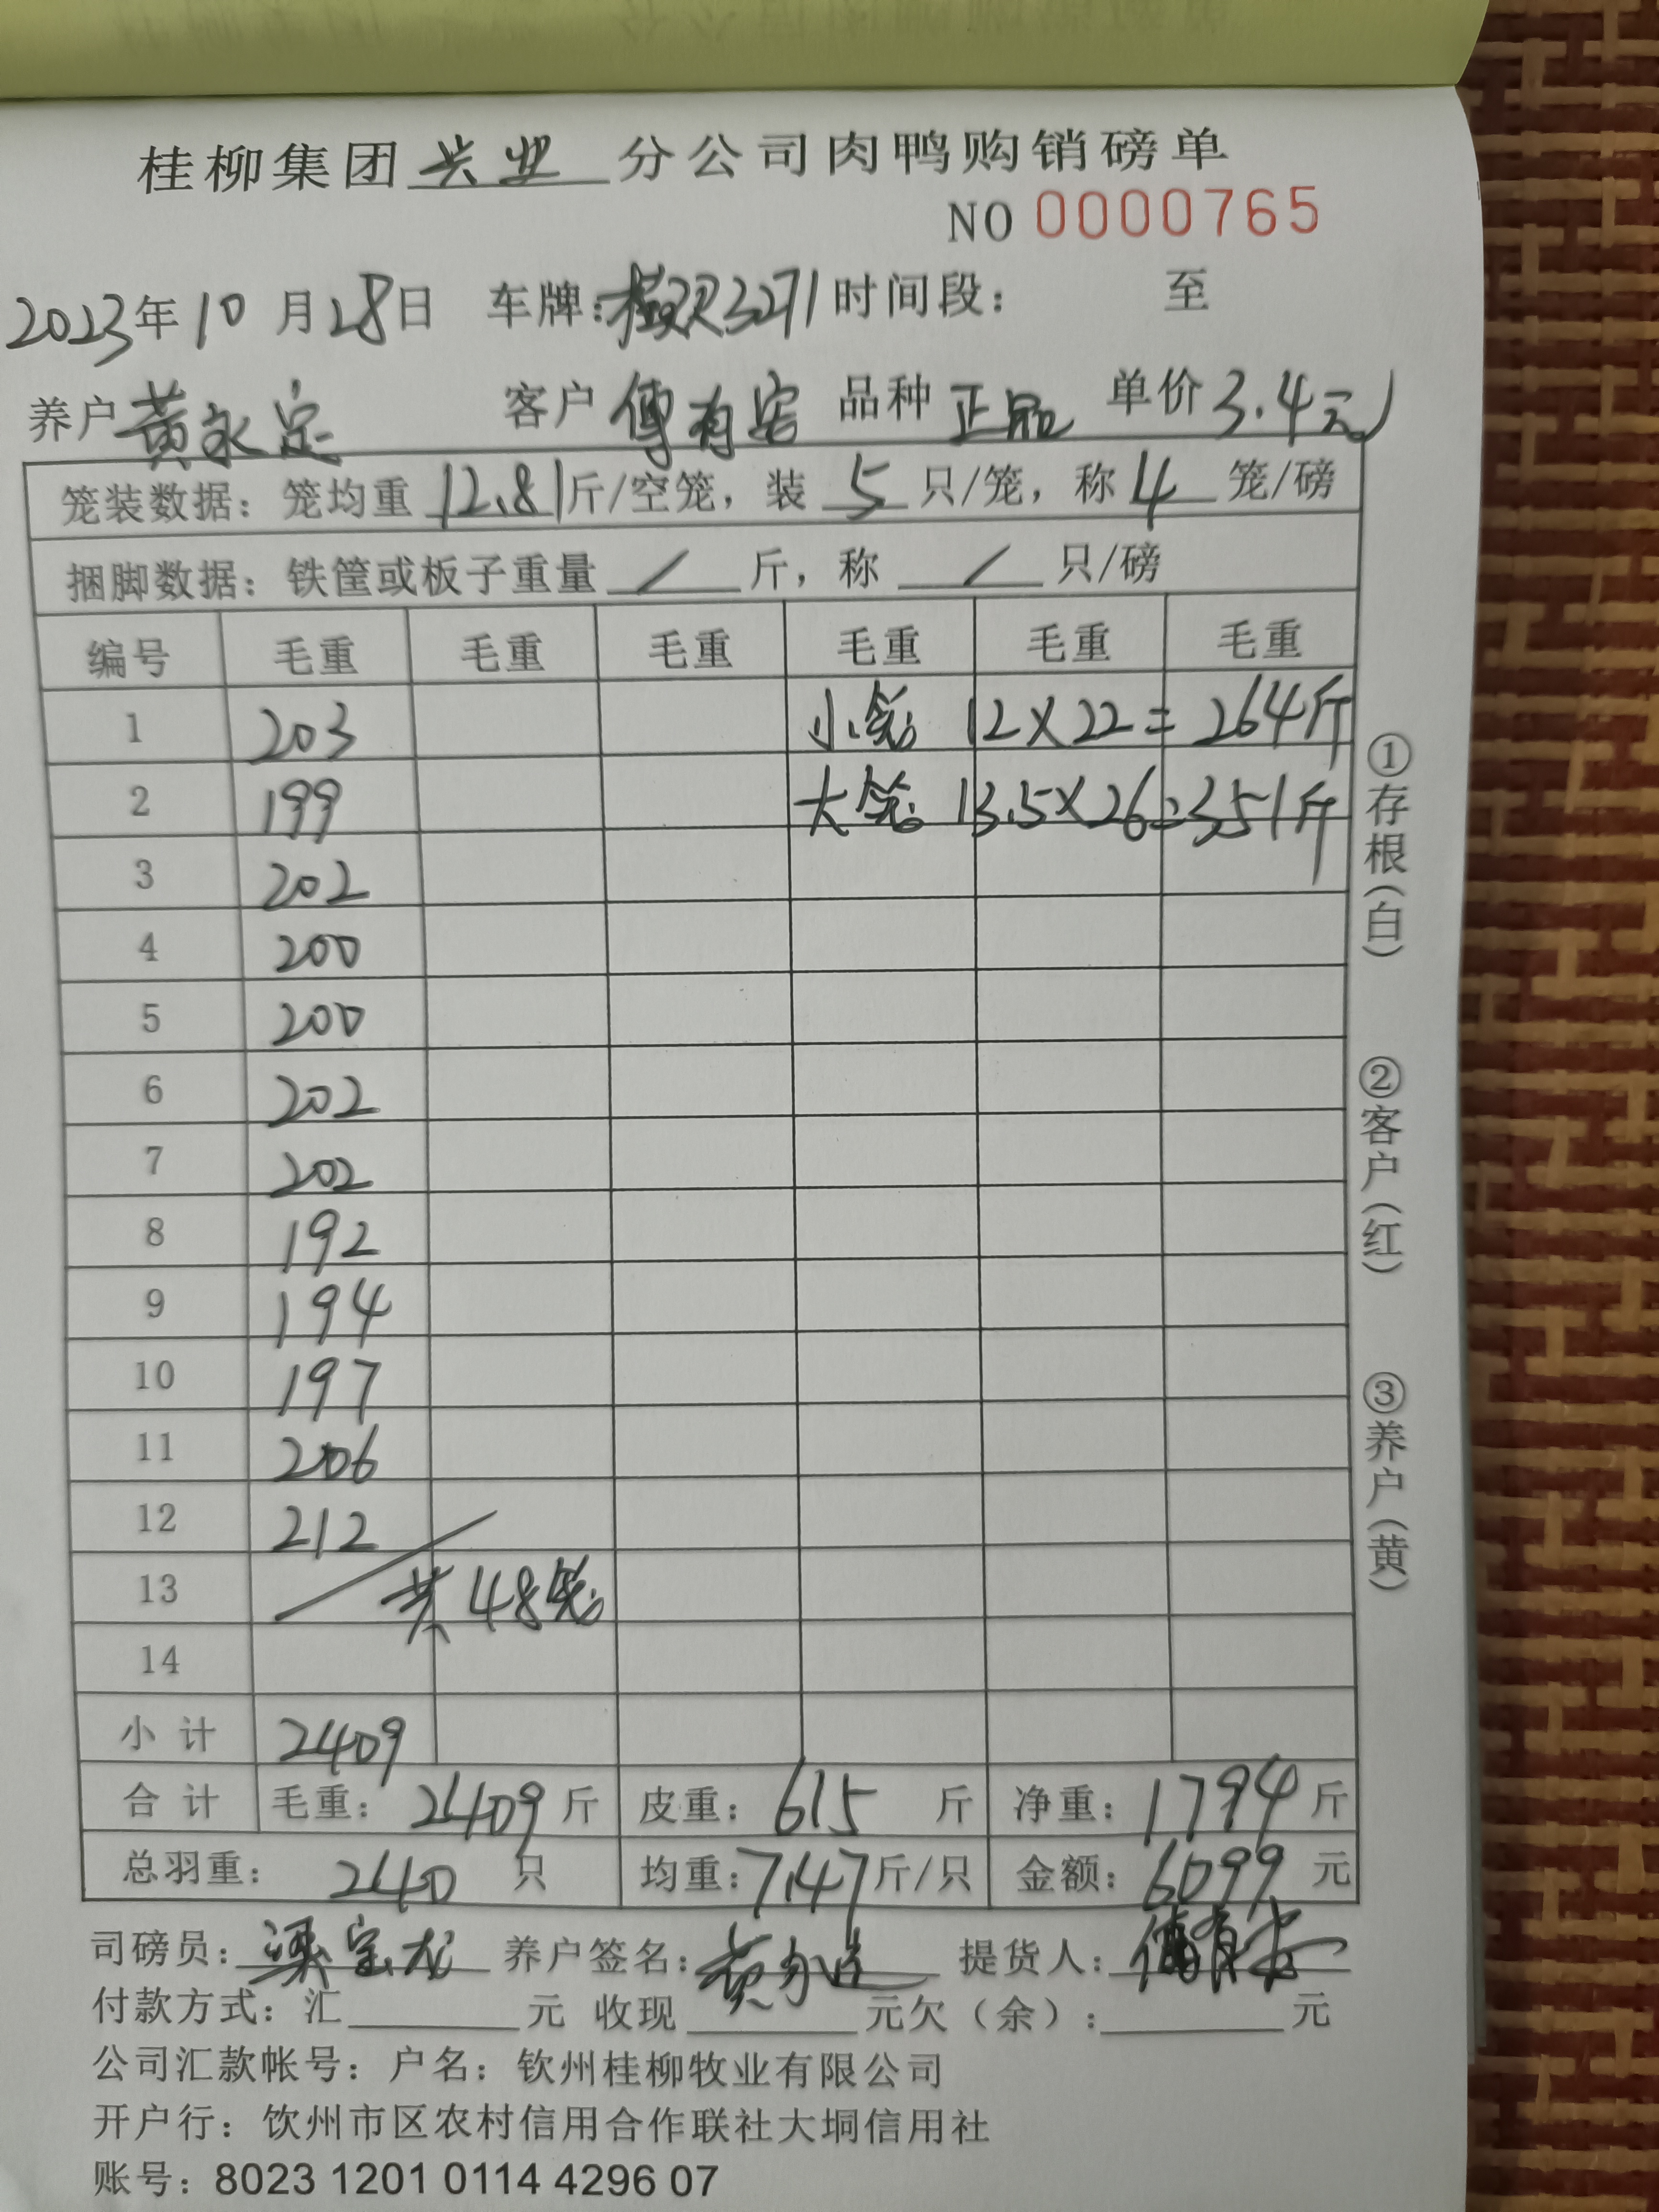 桂柳集团兴业分公司肉鸭购销磅单
NO 0000765
2023年10月28日 车牌:桂 3271 时间段: 至
养户 黄永定 客户 傅有 品种 正品 单价 3.4元
笼装数据: 笼均重 12.81斤/空笼, 装 5 只/笼, 称 4 笼/磅
捆脚数据: 铁筐或板子重量 / 斤, 称 / 只/磅
编号 毛重 毛重 毛重 毛重 毛重 毛重
1 203 小笼 12×22=264斤
2 199 大笼 13.5×26=351斤
3 202
4 200
5 200
6 202
7 202
8 192
9 194
10 197
11 206
12 212
13 共48笼
14
小计 2409
合计 毛重: 2409斤 皮重: 615 斤 净重: 1794斤
总羽重: 240 只 均重:7.47斤/只 金额: 6099 元
司磅员: 梁宝龙 养户签名: 黄永定 提货人: 傅有
付款方式: 汇 元 收现 元欠(余): 元
公司汇款帐号: 户名: 钦州桂柳牧业有限公司
开户行: 饮州市区农村信用合作联社大垌信用社
账号: 8023 1201 0114 4296 07
①存根(白)
②客户(红)
③养户(黄)